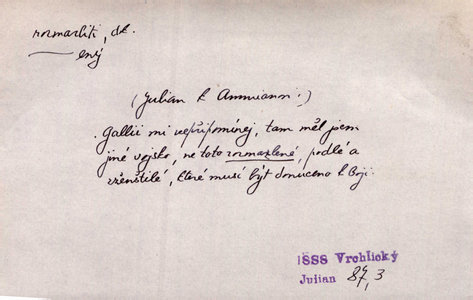 rozmazliti, dk.
—— ený
(Julian k Ammianovi:)
Gallii mi nepřipomínej, tam měl jsem
jiné vojsko, ne toto rozmazlené, podlé a
zženštilé, které musí být donuceno k boji.
SSS Vrchlický
Julian 87, 3